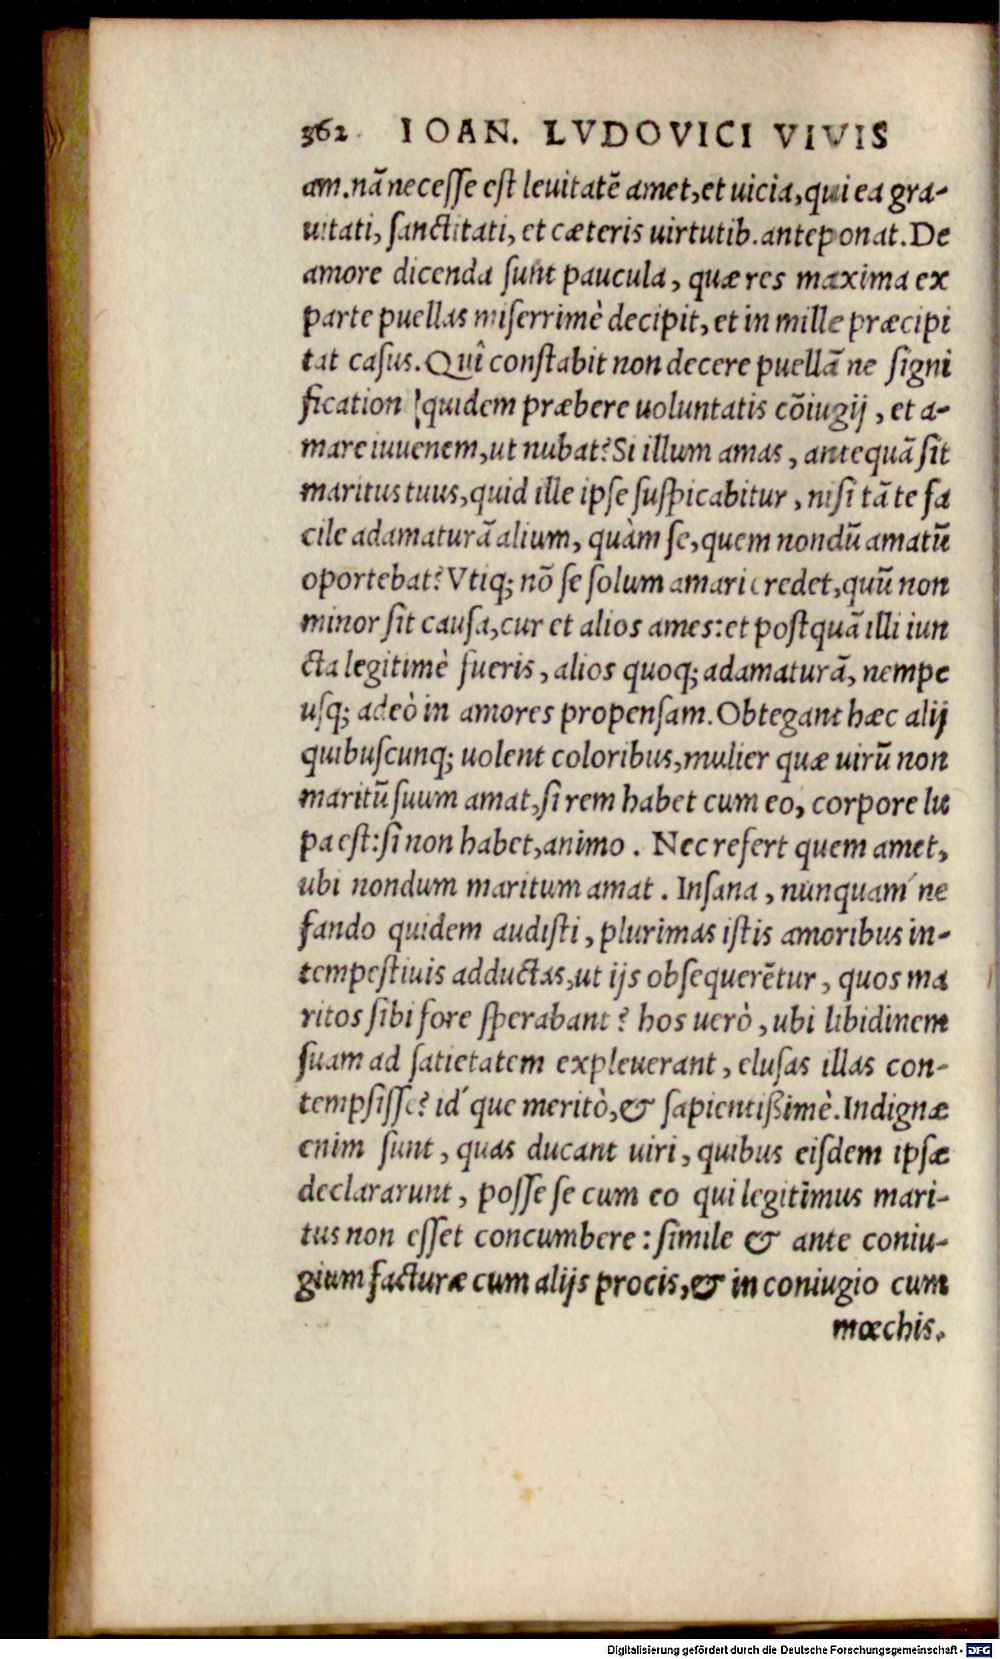 362 IOAN. LVDOVICI VIVIS
am. nã necesse est leuitatẽ amet, et uicia, qui ea gra-
uitati, sanctitati, et cæteris uirtutib. anteponat. De
amore dicenda sunt paucula, quæ res maxima ex
parte puellas miserrimè decipit, et in mille præcipi
tat casus. Quî constabit non decere puellã ne signi
fication quidem præbere uoluntatis cõiugij, et a-
mare iuuenem, ut nubat? Si illum amas, antequã sit
maritus tuus, quid ille ipse suspicabitur, nisi tã te fa
cile adamaturã alium, quàm se, quem nondũ amatũ
oportebat? Vtiq; nõ se solum amari credet, quũ non
minor sit causa, cur et alios ames: et postquã illi iun
cta legitimè fueris, alios quoq; adamaturã, nempe
usq; adeò in amores propensam. Obtegant hæc alij
quibuscunq; uolent coloribus, mulier quæ uirũ non
maritũ suum amat, si rem habet cum eo, corpore lu
pa est: si non habet, animo. Nec refert quem amet,
ubi nondum maritum amat. Insana, nunquam´ne
fando quidem audisti, plurimas istis amoribus in-
tempestiuis adductas, ut ijs obsequerẽtur, quos ma
ritos sibi fore sperabant? hos uerò, ubi libidinem
suam ad satietatem expleuerant, elusas illas con-
tempsisse? id´que meritò, & sapientißimè. Indignæ
enim sunt, quas ducant uiri, quibus eisdem ipsæ
declararunt, posse se cum eo qui legitimus mari-
tus non esset concumbere: simile & ante coniu-
gium facturæ cum alijs procis, & in coniugio cum
mœchis.
Digitalisierung gefördert durch die Deutsche Forschungsgemeinschaft - DFG